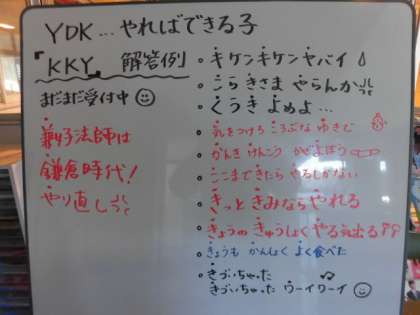 YDK…やればできる子
『KKY』 解答例
まだまだ受付中
兼好法師は
鎌倉時代!
やり直し
・キケンキケンヤバイ
・こらきさまやらんか
・くうきよめよ…
・気をつけろ ころぶな ゆきで
・かんき けんこう かぜよぼう
・ここまできたら やるしかない
・きっと きみなら やれる
・きょうの きゅうしょく やる気出る!!
・きょうも かんしょく よく食べた
・きづいちゃった
きづいちゃった ワーイワーイ